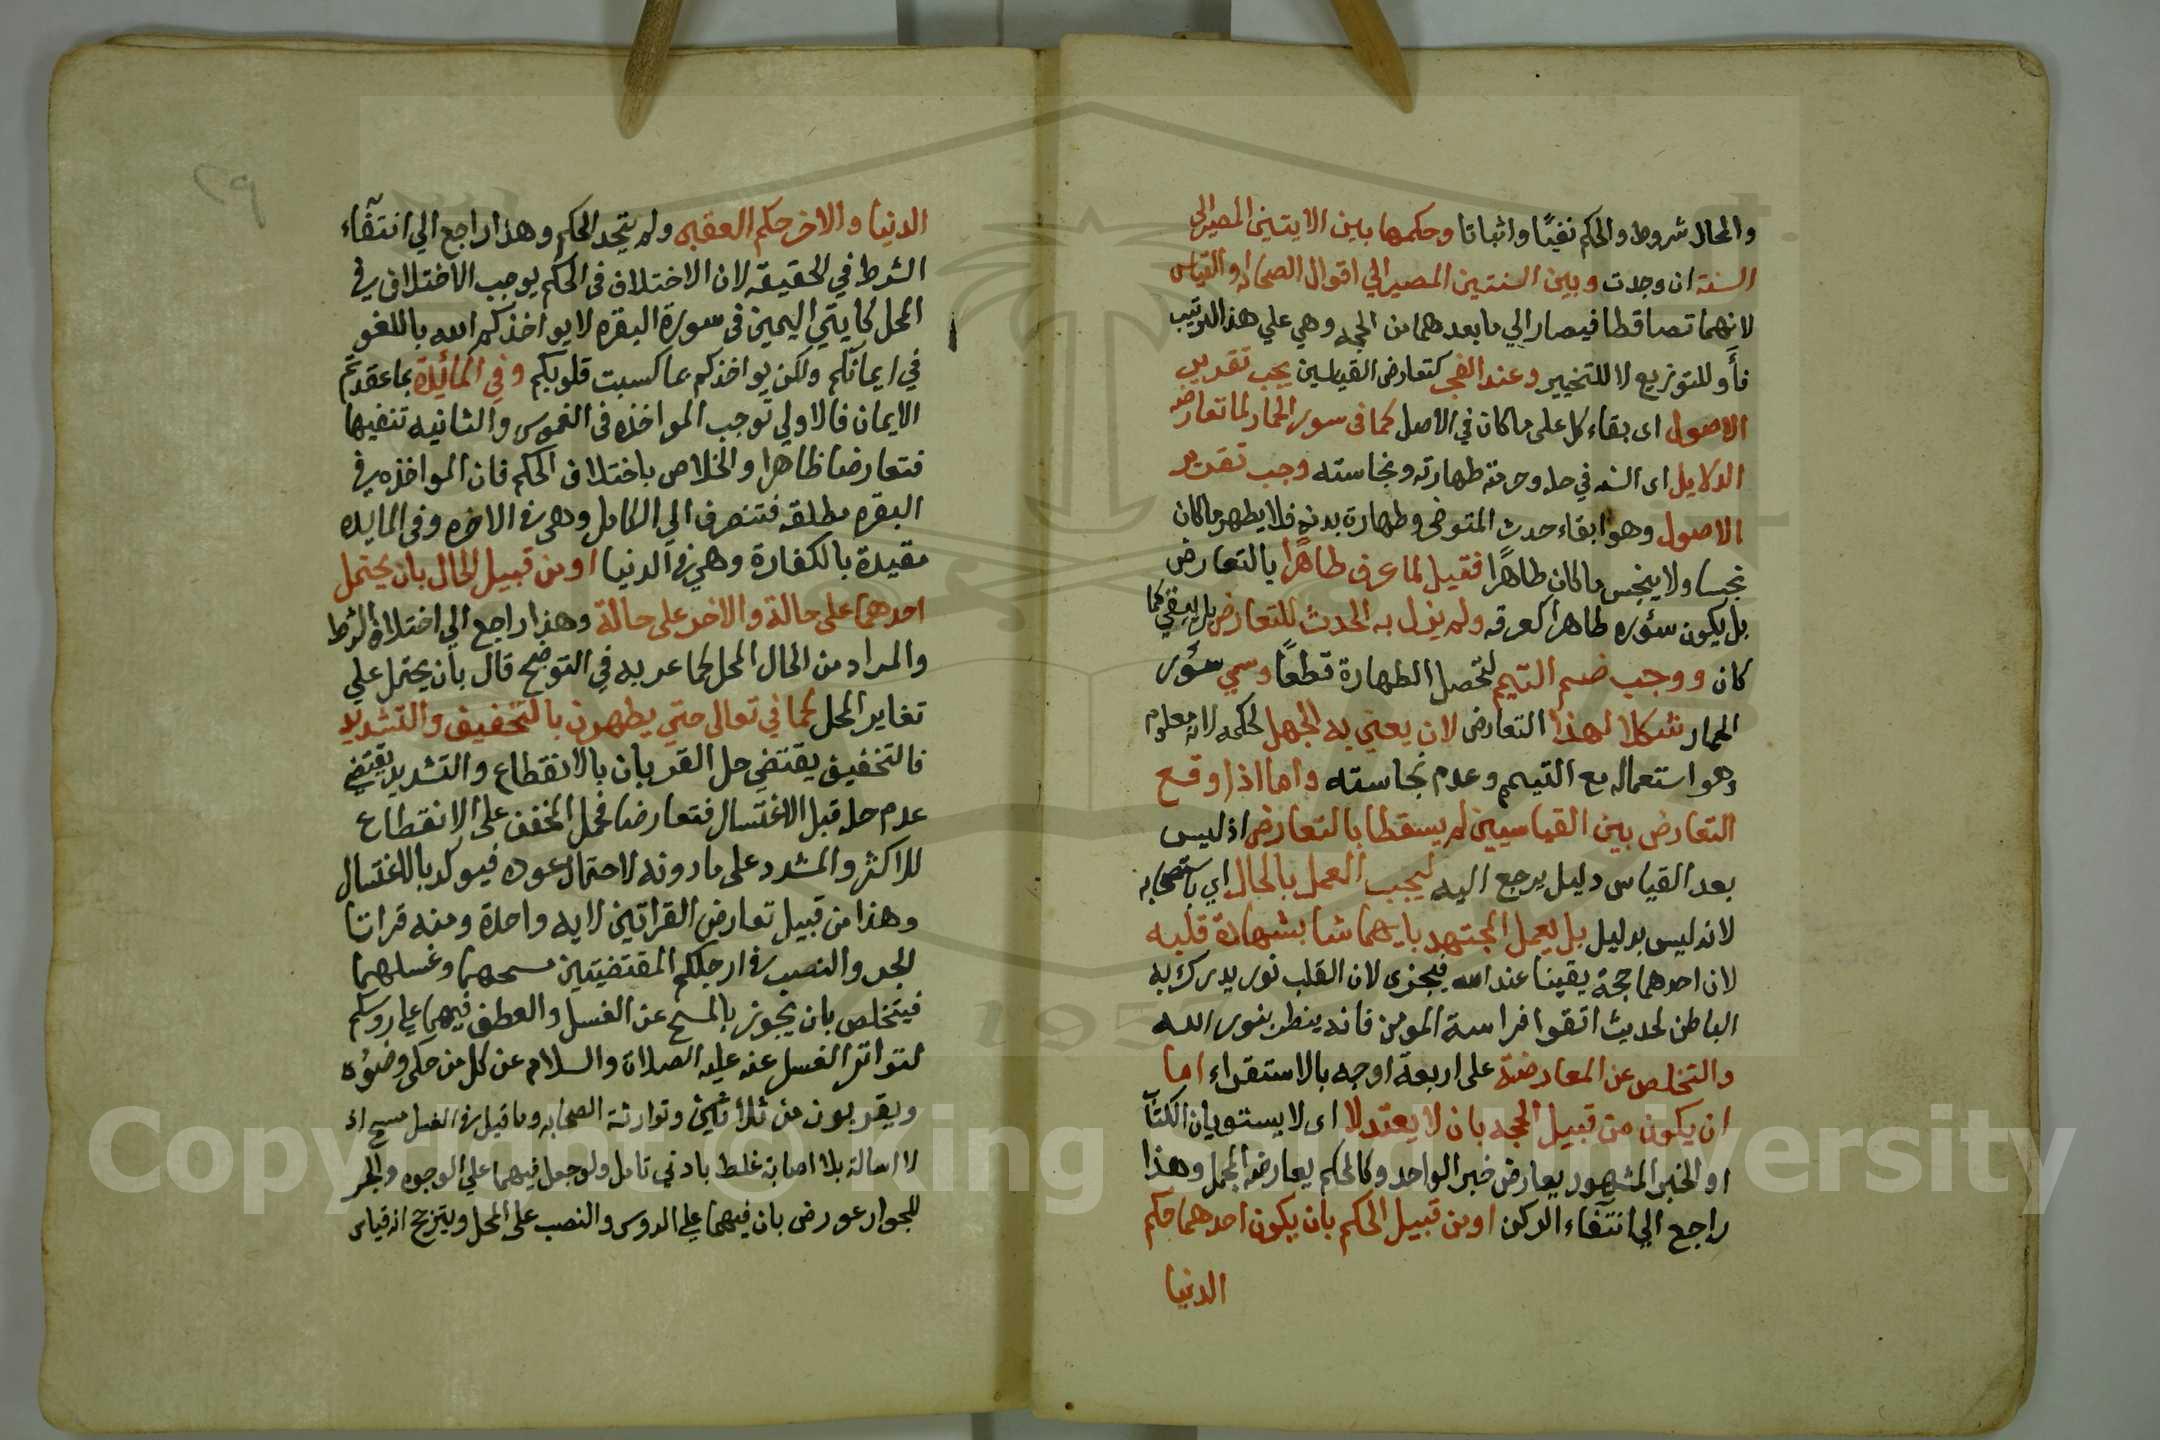 والمحال شروط والحكم نفيًا واثباتا وحكمها بين الايتين المصير الى
السنة ان وجدت وبين السنتين المصير الي اقوال الصحابة او القياس
لانهما تساقطا فيصار الي ما بعدهما من الحجه وهي علي هذا الترتيب
فأو للتوزيع لا للتخيير وعند العجز كتعارض القياسين يجب تقدير
الاصول اى بقاء كل على ما كان في الاصل كما فى سور الحمار لما تعارضت
الدلايل اى السنه في حله وحرمته طهارته ونجاسته وجب تقرير
الاصول وهو ابقاء حدث المتوضى وطهارة بدنه فلا يطهر ما كان
نجسا ولا ينجس ما كان طاهرًا فقيل لما عرف طاهرًا بالتعارض
بل يكون سئوره طاهرا كعرقه ولم يزل به الحدث للتعارض بل يبقي كما
كان ووجب ضم التيمم لتحصل الطهارة قطعًا وسمي سئور
الحمار شكلا لهذا التعارض لان يعني به الجهل لحكمه لانه معلوم
وهو استعماله مع التيمم وعدم نجاسته واما اذا وقع
التعارض بين القياسيين لم يسقطا بالتعارض اذ ليس
بعد القياس دليل يرجع اليه ليجب العمل بالحال اي باستصحابه
لانه ليس بدليل بل يعمل المجتهد بايهما شا بشهادة قلبه
لان احدهما حجة يقينا عند الله فيجزى لان القلب نور يدرك به
الباطن لحديث اتقوا فراسة المومن فانه ينظر بنور الله
والتخلص عن المعارضة على اربعة اوجه بالاستقراء اما
ان يكون من قبيل الحجه بان لا يعتدلا اى لا يستويان الكتاب
او الخبر المشهور يعارض خبر الواحد وكالمحكم يعارضه المجمل وهذا
راجع الي انتفاء الركن او من قبيل الحكم بان يكون احدهما حكم
الدنيا
٢٩
الدنيا والاخر حكم العقبى ولم يتحد الحكم وهذا راجع الي انتفاء
الشرط في الحقيقه لان الاختلاف فى الحكم يوجب الاختلاف في
المحل كايتي اليمين فى سورة البقره لا يواخذكم الله باللغو
في ايمانكم ولكن يواخذكم بما كسبت قلوبكم وفي المائدة بما عقدتم
الايمان فالاولي توجب المواخذه فى الغموس والثانيه تنفيها
فتعارضا ظاهرا والخلاص باختلاف الحكم فان المواخذه في
البقره مطلقه فتنصرف الي الكامل وهى في الاخره وفى المايده
مقيدة بالكفارة وهي في الدنيا او من قبيل الحال بان يحتمل
احدهما على حالة والاخر على حالة وهذا راجع الي اختلاف الشرط
والمراد من الحال المحل كما عبر به في التوضيح قال بان يحتمل علي
تغاير المحل كما في تعالى حتي يطهرن بالتخفيف والتشديد
فالتخفيف يقتضي حل القربان بالانقطاع والتشديد يقتضي
عدم حله قبل الاغتسال فتعارضا فحمل المخفف على الانقطاع
للاكثر والمشدد على ما دونه لاحتمال عوده فيوكد بالاغتسال
وهذا من قبيل تعارض القراتين لايه واحدة ومنه قراتا
الجر والنصب في ارجلكم المقتضيتين مسحهما وغسلهما
فيتخلص بان يجوز بالمسح عن الغسل والعطف فيهما علي روسكم
لتواتر الغسل عنه عليه الصلاة والسلام عن كل من حكى وضوه
ويقربون من ثلاثين وتوارثه الصحابه وما قيل في الغسل مسح اذ
لا اسالة بلا اصابة غلط بادني تامل ولو جعل فيهما علي الوجوه والجر
للجوار عورض بان فيهما علي الروس والنصب على المحل ويترجح انه قياس